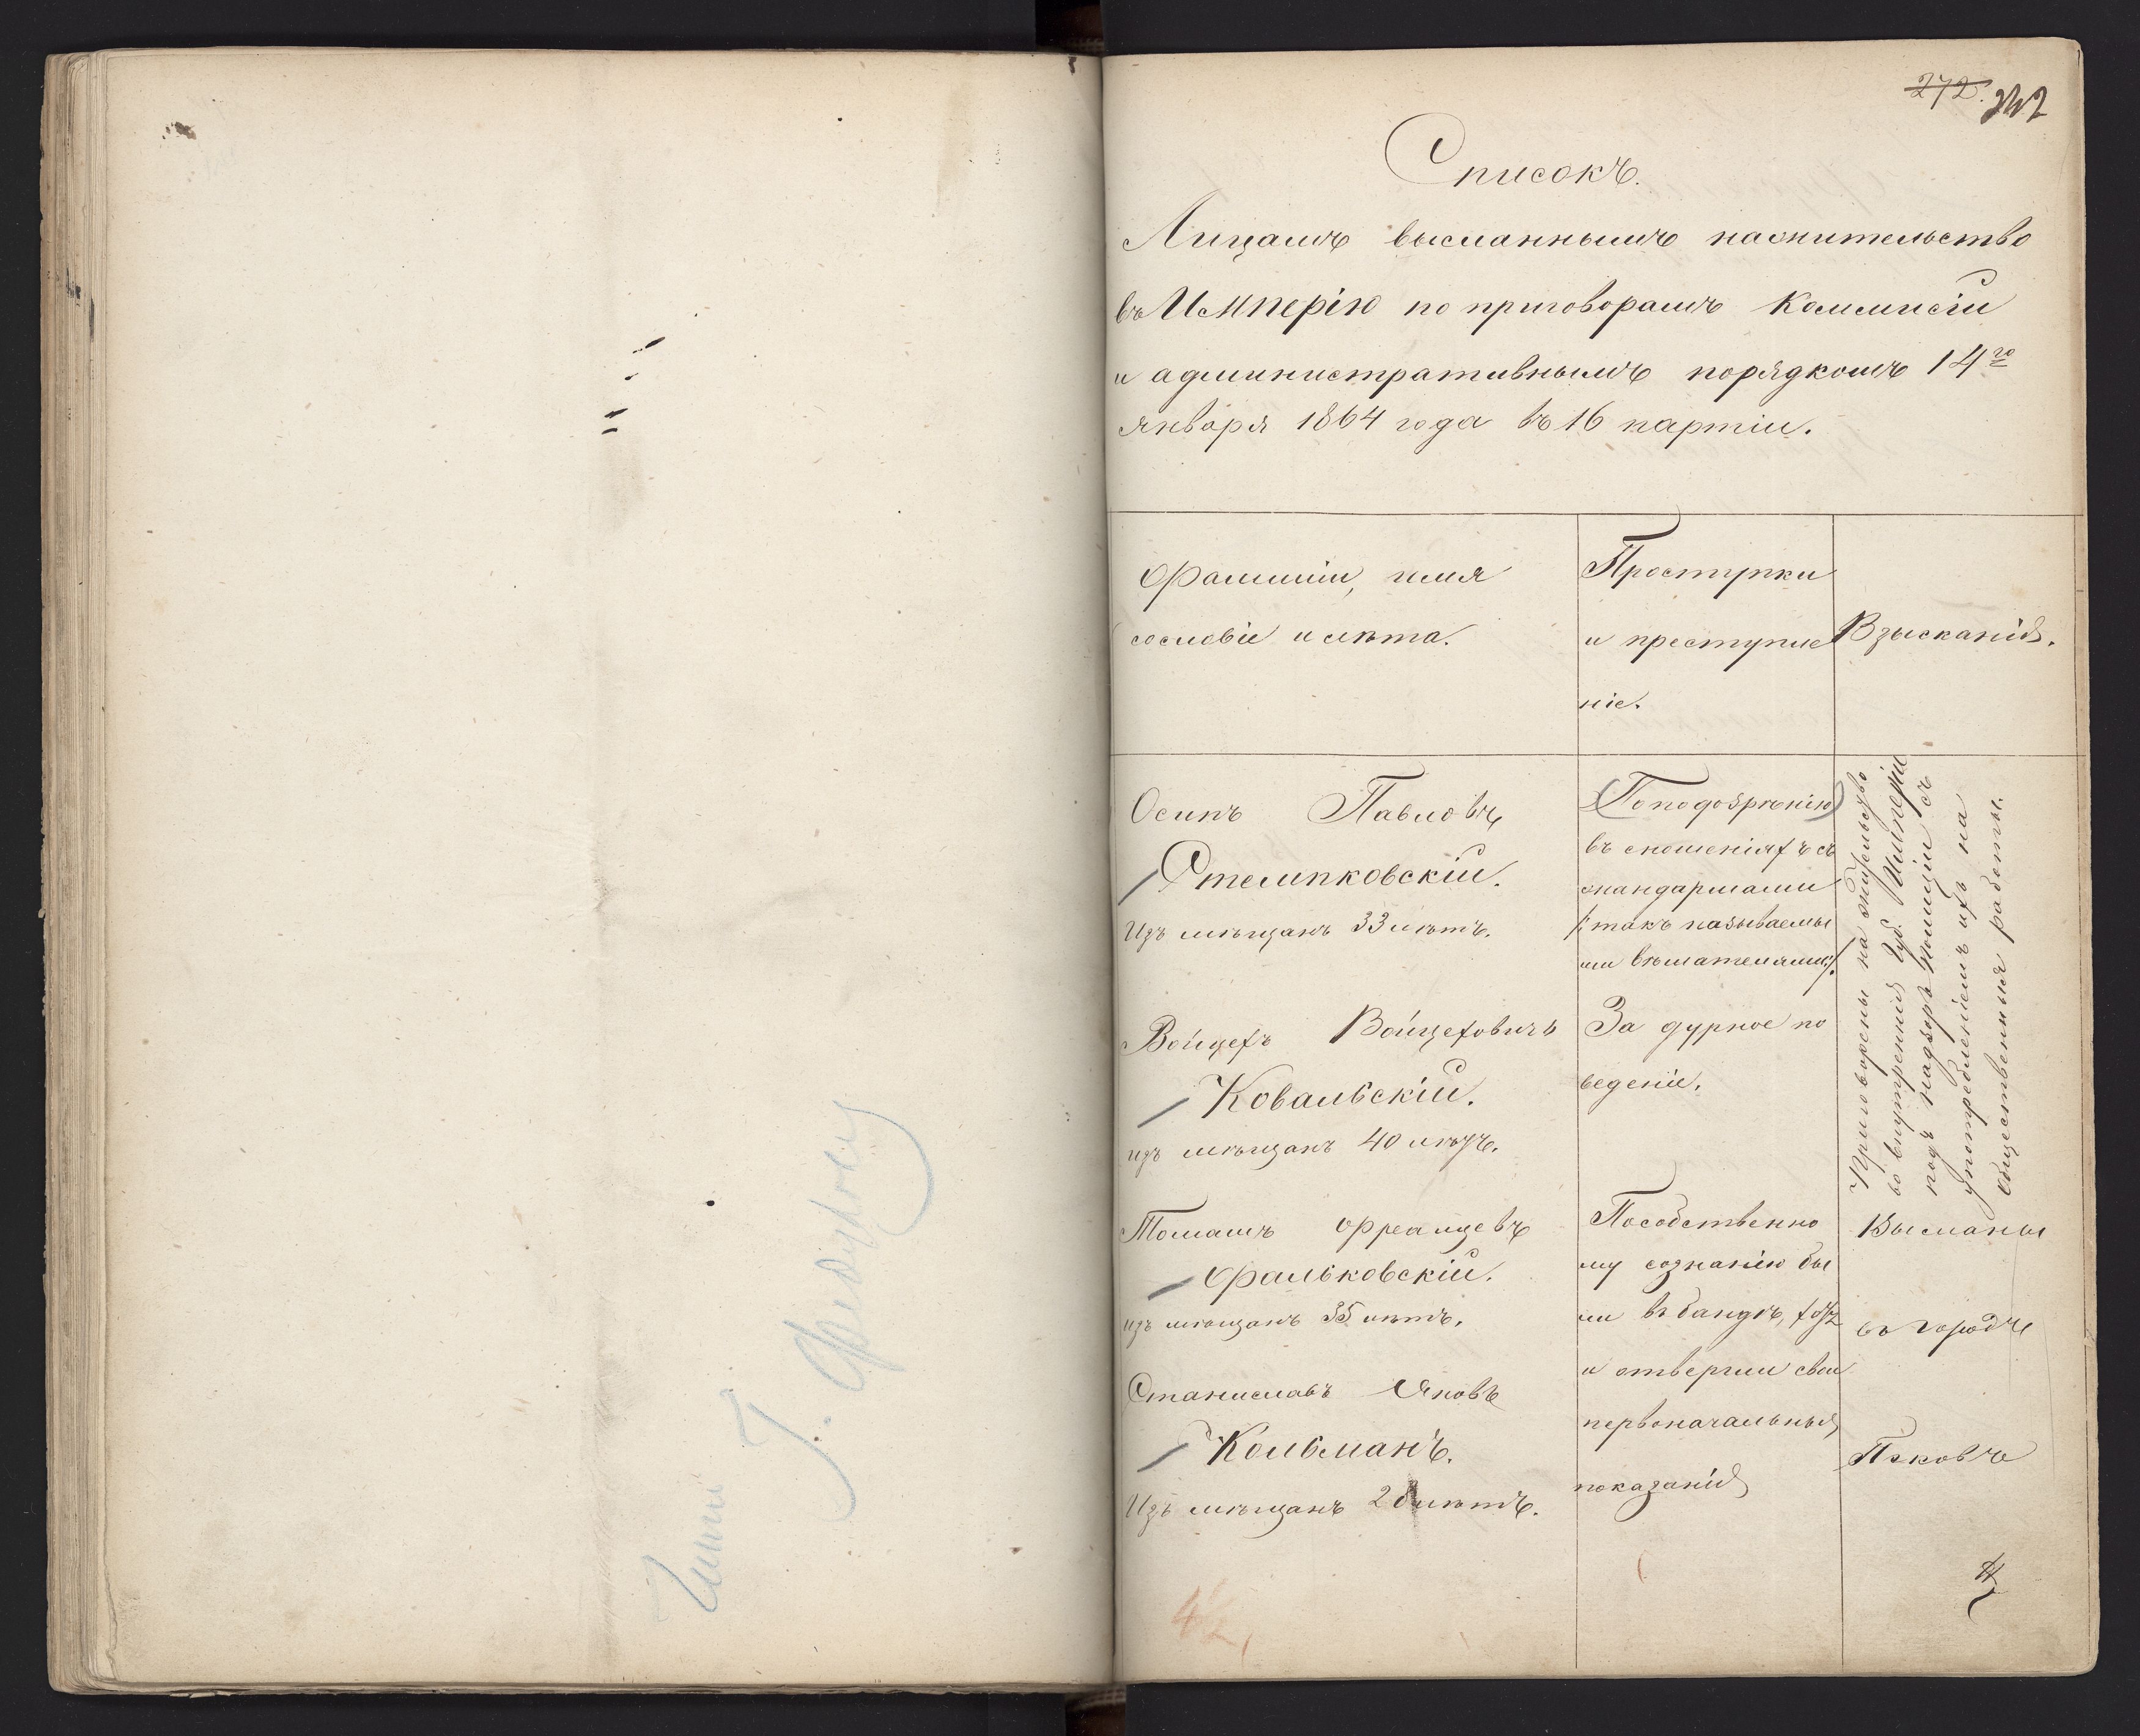 272.
Списокъ.
Лицамъ высланнымъ нажительство
въ Имперію по приговорамъ Коммисіи
и административнымъ порядкомъ 14го
января 1864 года въ 16 партіи.
Фамиліи, имя
сословіе и лѣта.
Проступки
и преступле
ніе.
Взысканія.
Осипъ Павловъ
Стемпковскій.
Изъ мѣщанъ 33 лѣтъ.
По подозрѣнію
въ сношеніяхъ съ
жандармами
/: такъ называемы
ми вѣшателями :/.
Войцехъ Войцеховичъ
Ковальскій.
изъ мѣщанъ 40 лѣтъ.
За дурное по
веденіе.
Томашъ Францевъ
Фальковскій.
изъ мѣщанъ 35 лѣтъ.
Станиславъ Яновъ
Кольманъ.
Изъ мѣщанъ 26 лѣтъ.
Пособственно
му сознанію бы
ли въ бандѣ, хотя
и отвергли свои
первоначальныя
показанія
Приговорены на жительство
во внутреннія губ. Имперіи
подъ надзоръ полиціи съ
употребленіемъ ихъ на
общественныя работы.
Высланы
въ городъ
Псковъ
4